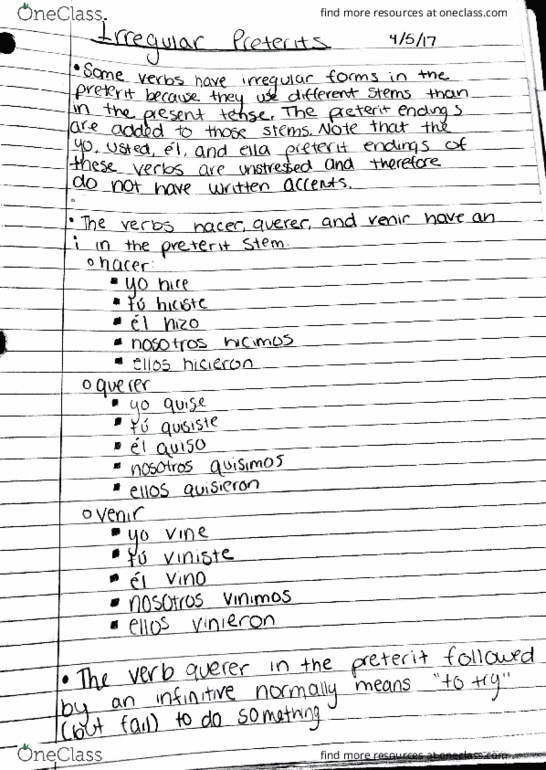 OneClass
find more resources at oneclass.com
Irregular Preterits 4/5/17
• Some verbs have irregular forms in the
preterit because they use different stems than
in the present tense. The preterit endings
are added to those stems. Note that the
yo, usted, él, and ella preterit endings of
these verbs are unstressed and therefore
do not have written accents.
• The verbs hacer, querer, and venir have an
i in the preterit stem.
o hacer:
▪ yo hice
▪ tú hiciste
▪ él hizo
▪ nosotros hicimos
▪ ellos hicieron
o querer
▪ yo quise
▪ tú quisiste
▪ él quiso
▪ nosotros quisimos
▪ ellos quisieron
o venir
▪ yo vine
▪ tú viniste
▪ él vino
▪ nosotros vinimos
▪ ellos vinieron
• The verb querer in the preterit followed
by an infinitive normally means "to try"
(but fail) to do something
OneClass
find more resources at oneclass.com